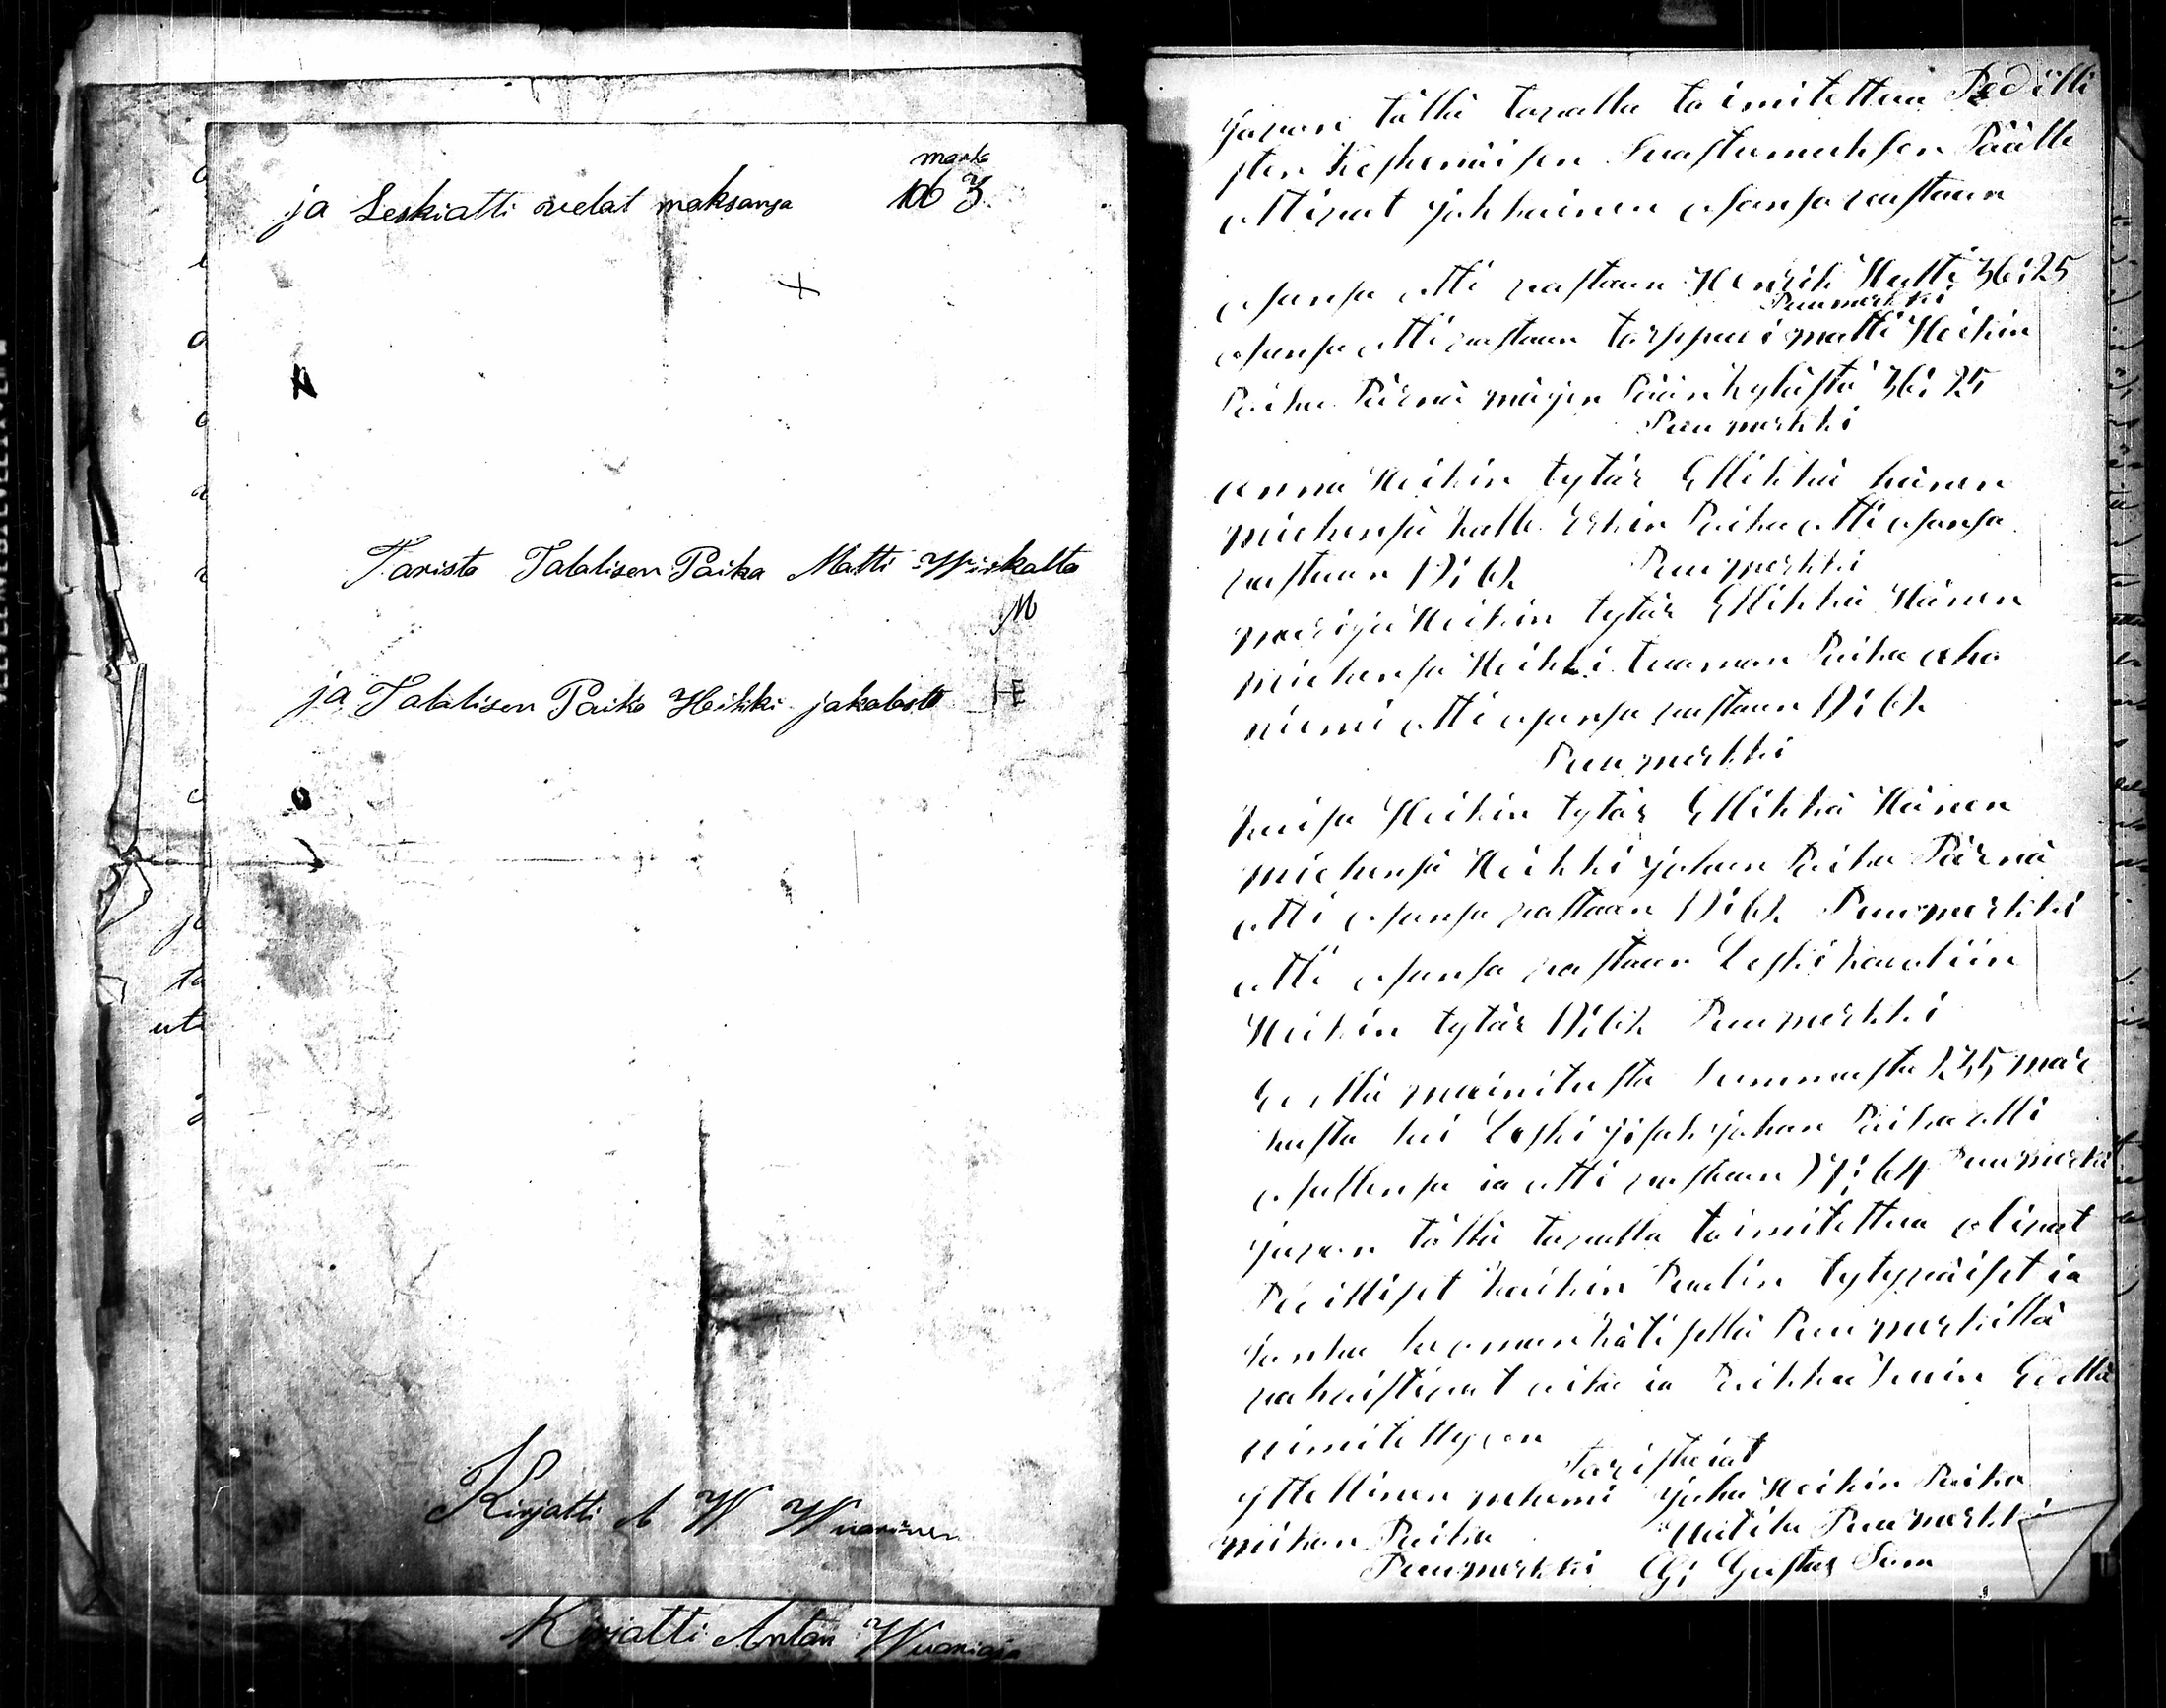 mark
ja Leskiatti velat maksansa 106 3
Tarista Talalisen Poika Matti Wirkalta
M
ja Talalisen Poika Heikki jakalasta HE
Kirjatti A W Wuorinen
Kirjatti Antan
javan tällä tavalla toimitettua
sten Keskenäisen Suastumuksen Päälle
ottivat jokhainen osansa vastaan
osansa otti vastaan Henrik Matti 36:25
Puumerkki
osansa otti vastaan torppari matti Heikin
Poika Pärnä märjen Päänkylästä 36:25
Puu merkki
anna Heikin tytär Ellikkä hänen
miehensä Kalle Erkin Poika otti osansa
vastaan 17:62 Puumerkki
marija Heikin tytär Ellikkä Hänen
miehensa Heikki tuaman Poika aho
niemi otti osansa vastaan 17:62
Puu merkki
kaisa Heikin tytär Ellikkä Hänen
miehensä Heikki johan Poika Pärnä
otti osansa vastaan 17:62 Puumerkki
otti osansa vastaan Leski karoliin
Heikin tytär 17:62 Puumerkki
Edellä mainitusta Summasta 235 mar
kasta sai Leski jisak johan Poika otti
osallensa ia otti vastaan 27:64 Puumerki
javan tällä tavalla toimitettua olivat
Pesilliset kaikin Puolin tytyväiset ia
jonka huaman kätisellä Puu merkillä
vahvistivat aika ia Paikka kuin Edellä
nimitettyvon
Taristavat
yttellinen nehemi juha Heikin Poika
mikon Poika Uutila Puumerkki
Puumerkki G: Gustav Sam